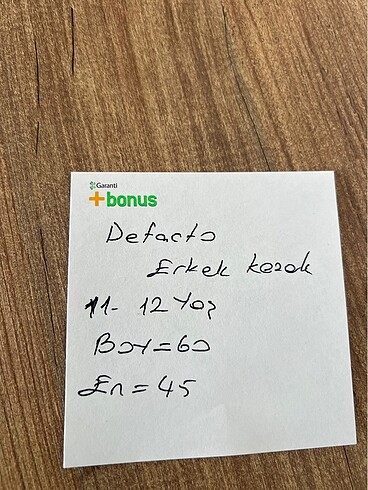 Garanti
+bonus
Defacto
Erkek kazak
11-12 Yaş
Boy=60
En=45